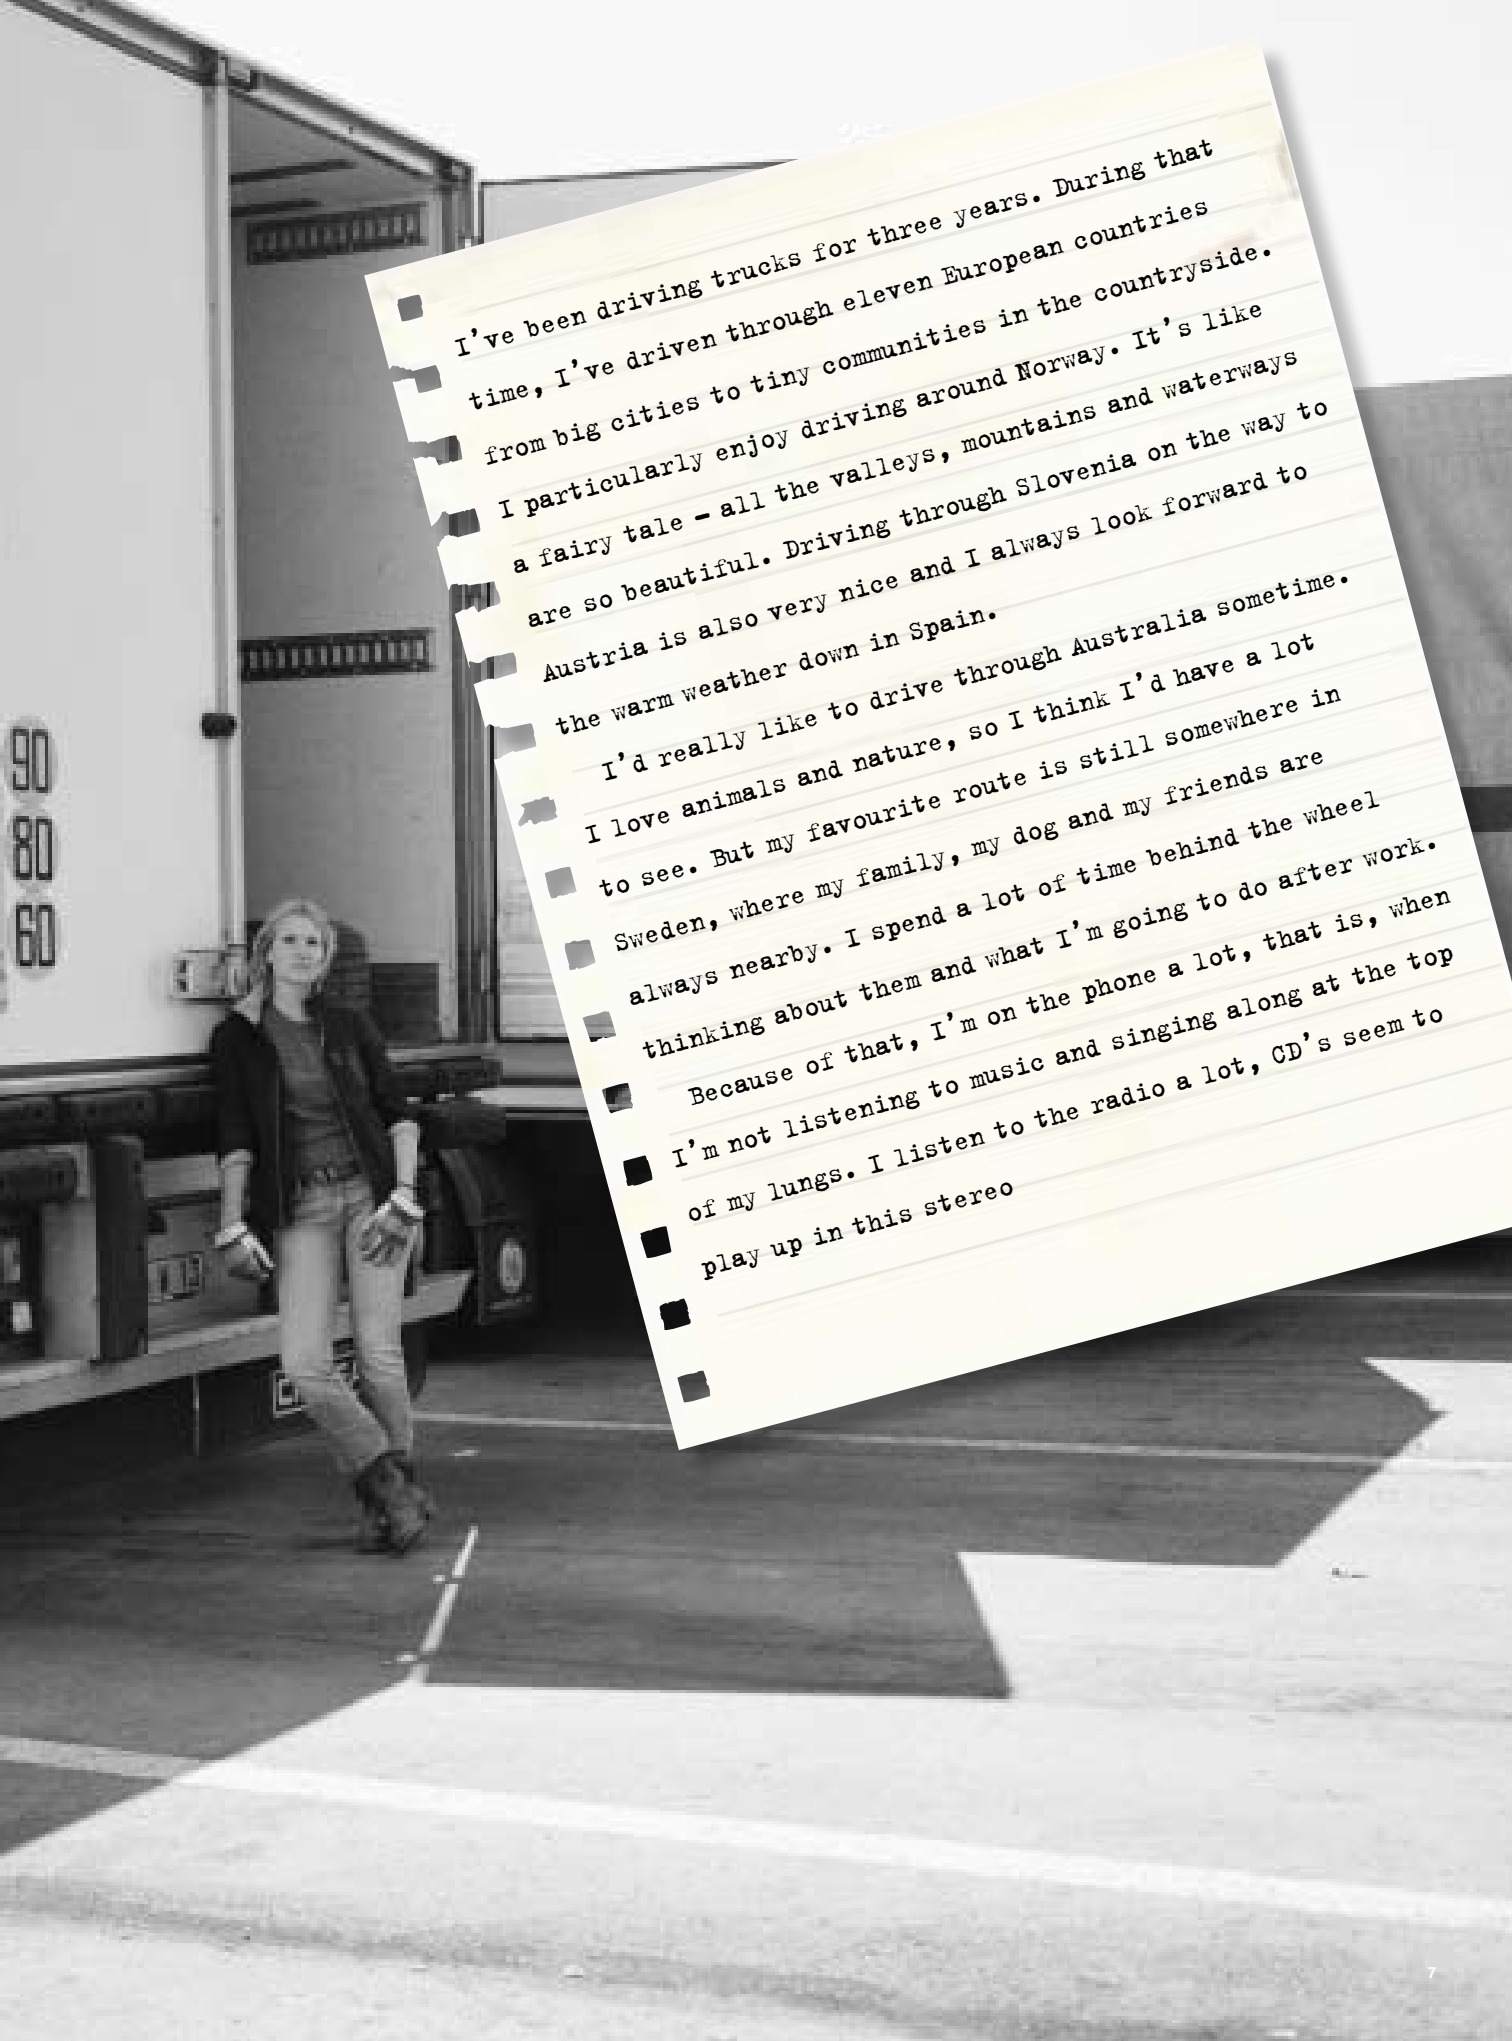 I've been driving trucks for three years. During that
time, I've driven through eleven European countries
from big cities to tiny communities in the countryside.
I particularly enjoy driving around Norway. It's like
a fairy tale – all the valleys, mountains and waterways
are so beautiful. Driving through Slovenia on the way to
Austria is also very nice and I always look forward to
the warm weather down in Spain.
I'd really like to drive through Australia sometime.
I love animals and nature, so I think I'd have a lot
to see. But my favourite route is still somewhere in
Sweden, where my family, my dog and my friends are
always nearby. I spend a lot of time behind the wheel
thinking about them and what I'm going to do after work.
Because of that, I'm on the phone a lot, that is, when
I'm not listening to music and singing along at the top
of my lungs. I listen to the radio a lot, CD's seem to
play up in this stereo
90
80
60
7